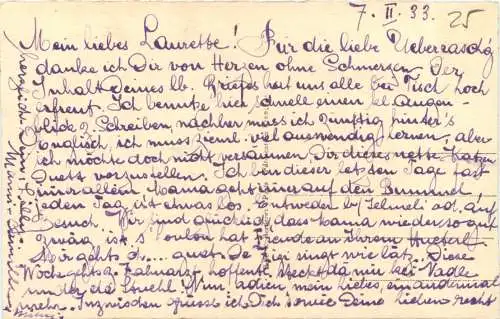 7. II. 33. 25
Mein liebes Laurettse! Für die liebe Ueberraschg
danke ich Dir von Herzen ohne Schmerzen. Der
Inhalt Deines lb. Briefes hat uns alle bei Tisch hoch
erfreut. Ich benutze hier schnell einen kl. Augen-
blick z. Schreiben, nachher muss ich zünftig hinter's
Englisch, ich muss zieml. viel auswendig lernen, aber
ich möchte doch nicht versäumen Dir dieses nette Katzen
Duett vorzustellen. Ich bin dieser letzten Tage fast
immer allein. Mama geht immer auf den Bummel!
Jeden Tag ist etwas los. Entweder by Selmeli od. auf
Besuch. Wir sind glücklich dass Mama wieder so gut
zwäg ist. s' hat Freude an Ihrem
Mir gehts gut. De singt wie lätz. Diese
Woche gehts z. Zahnarzt, hoffentl. steckt da mir kei Nadle
under de Strehl! Nun, adieu mein Liebes, ein andermal
mehr. Inzwischen grüsse ich Dich sowie Deine Lieben recht
herzlich Dein